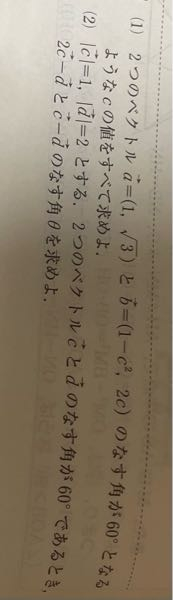 (1) 2つのベクトル \vec{a}=(1, √3) と \vec{b}=(1−c², 2c) のなす角が60°となる
ような c の値をすべて求めよ.
(2) |\vec{c}|=1, |\vec{d}|=2 とする. 2つのベクトル \vec{c} と \vec{d} のなす角が60°であるとき,
2\vec{c}−\vec{d} と \vec{c}−\vec{d} のなす角 θ を求めよ.